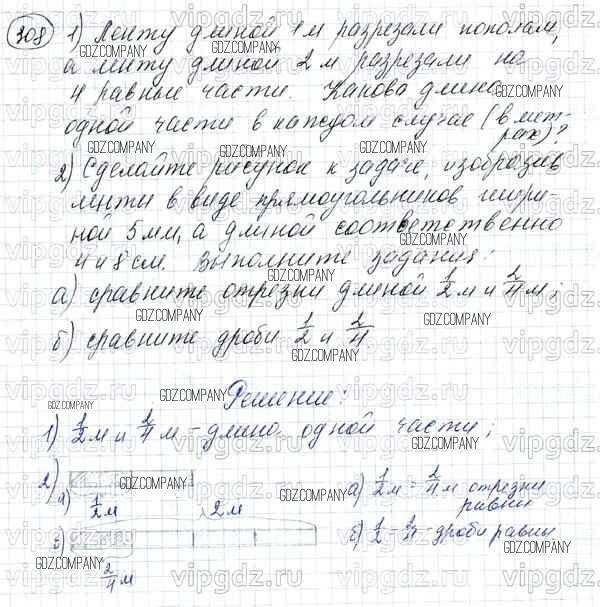 308 1) Ленту длиной 1 м разрезали пополам,
а ленту длиной 2 м разрезали на
4 равные части. Какова длина
одной части в каждом случае (в мет-
рах)?
2) Сделайте рисунок к задаче, изобразив
ленти в виде прямоугольников шири-
ной 5 мм, а длиной соответственно
4 и 8 см. Выполните задания:
а) сравните отрезки длиной 1/2 м и 2/4 м;
б) сравните дроби 1/2 и 2/4
Решение:
1) 1/2 м и 2/4 м - длина одной части;
2)
а) 1/2 м
2 м
в)
2/4 м
а) 1/2 м = 2/4 м отрезки
равни
б) 1/2 = 2/4 - дроби равны
GDZ.COMPANY
vipgdz.ru